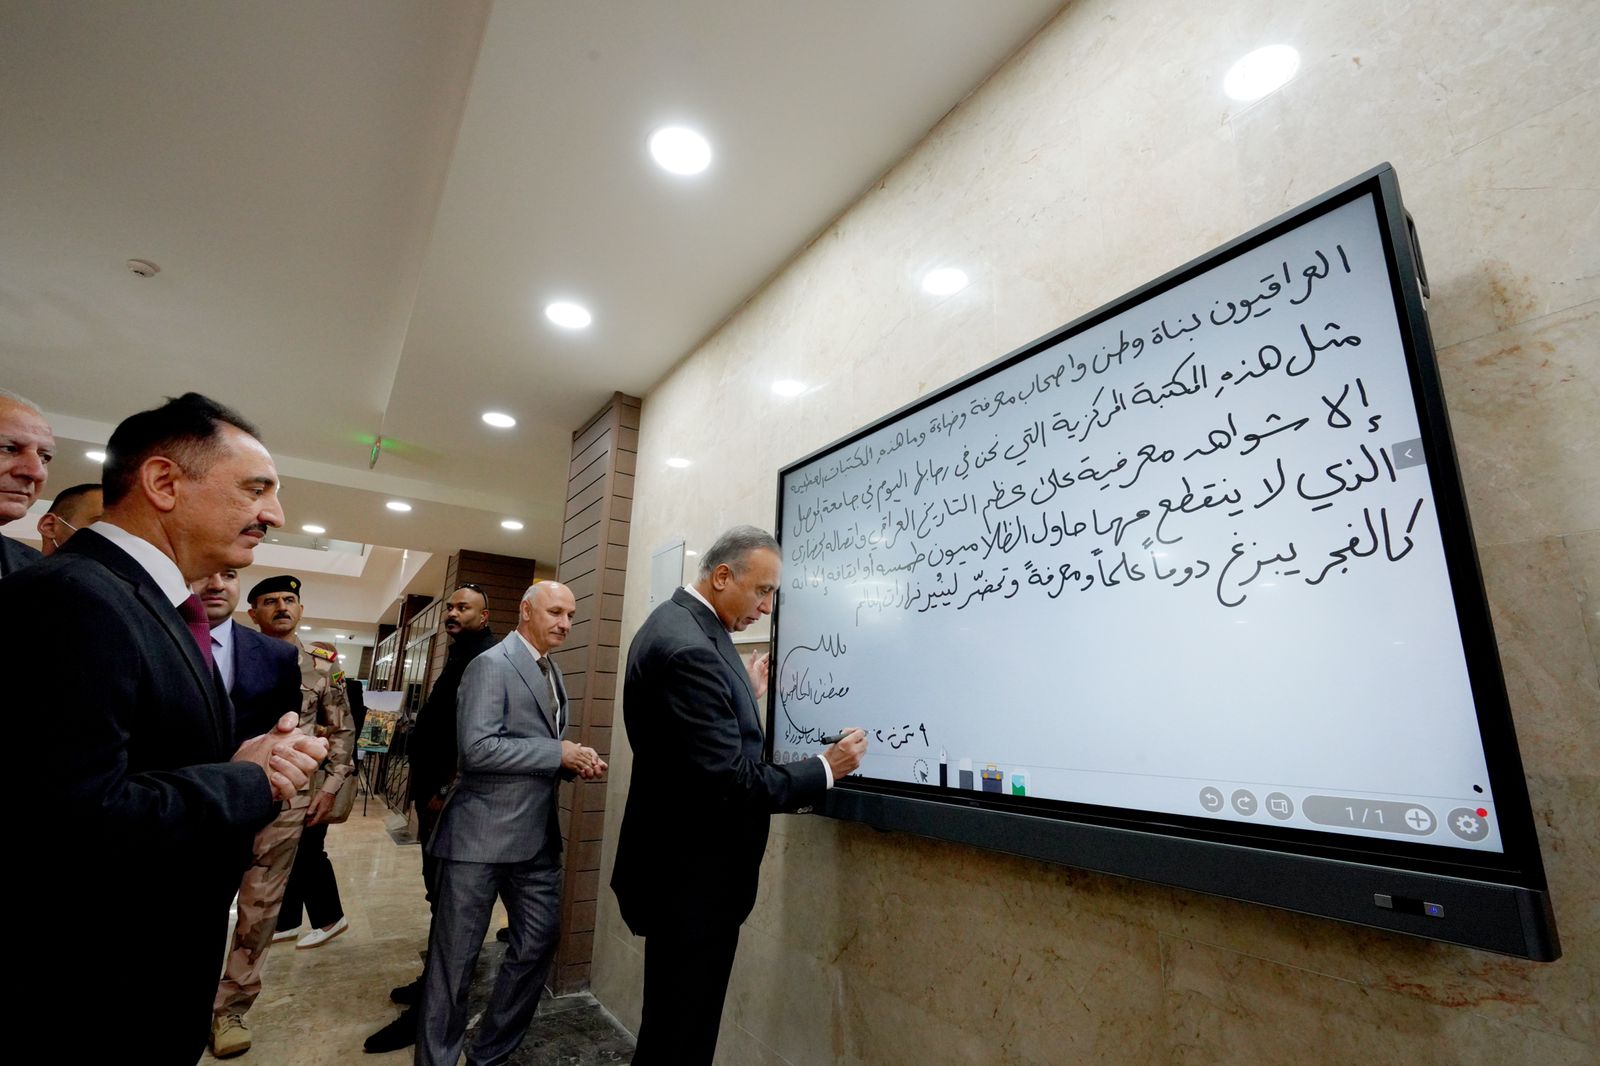 العراقيون بناة وطن واصحاب معرفة وضاءة وما هذهِ المكتبات العظيمة
مثل هذهِ المكتبة المركزية التي نحن في رحابها اليوم في جامعة الموصل
إلا شواهد معرفية على عظم التاريخ العراقي واتصاله الحضاري
الذي لا ينقطع مهما حاول الظلاميون طمسه أو ايقافه إلا انه
كالفجر يبزغ دوماً علماً ومعرفةً وتحضّر ليُنير
مصطفى الكاظمي
مجلس الوزراء
٩ تموز ٢
1/1